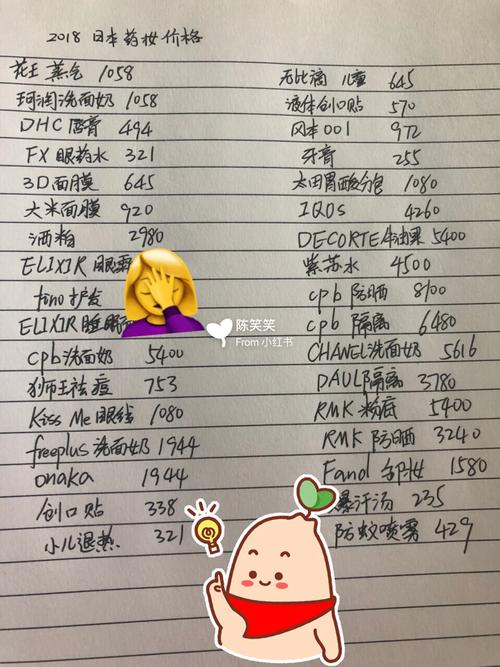 2018 日本药妆价格
花王 蒸气 1058
珂润洗面奶 1058
DHC 唇膏 494
FX 眼药水 321
3D面膜 645
大米面膜 920
酒粕 2980
ELIXIR 眼霜
fino护发
ELIXIR
cpb洗面奶 5400
狮王祛痘 753
Kiss Me眼线 1080
freeplus 洗面奶 1944
onaka 1944
创口贴 338
小儿退热 321
无比滴 儿童 645
液体创口贴 570
冈本001 972
牙膏 255
太田胃酸分包 1080
IQOS 4260
DECORTE 牛油果 5400
紫苏水 4500
cpb 防晒 8100
cpb 隔离 6480
CHANEL洗面奶 5616
DAUL隔离 3780
RMK 粉底 5400
RMK 防晒 3240
Fand 卸妆 1580
爆汗汤 235
防蚊喷雾 429
陈笑笑
From 小红书